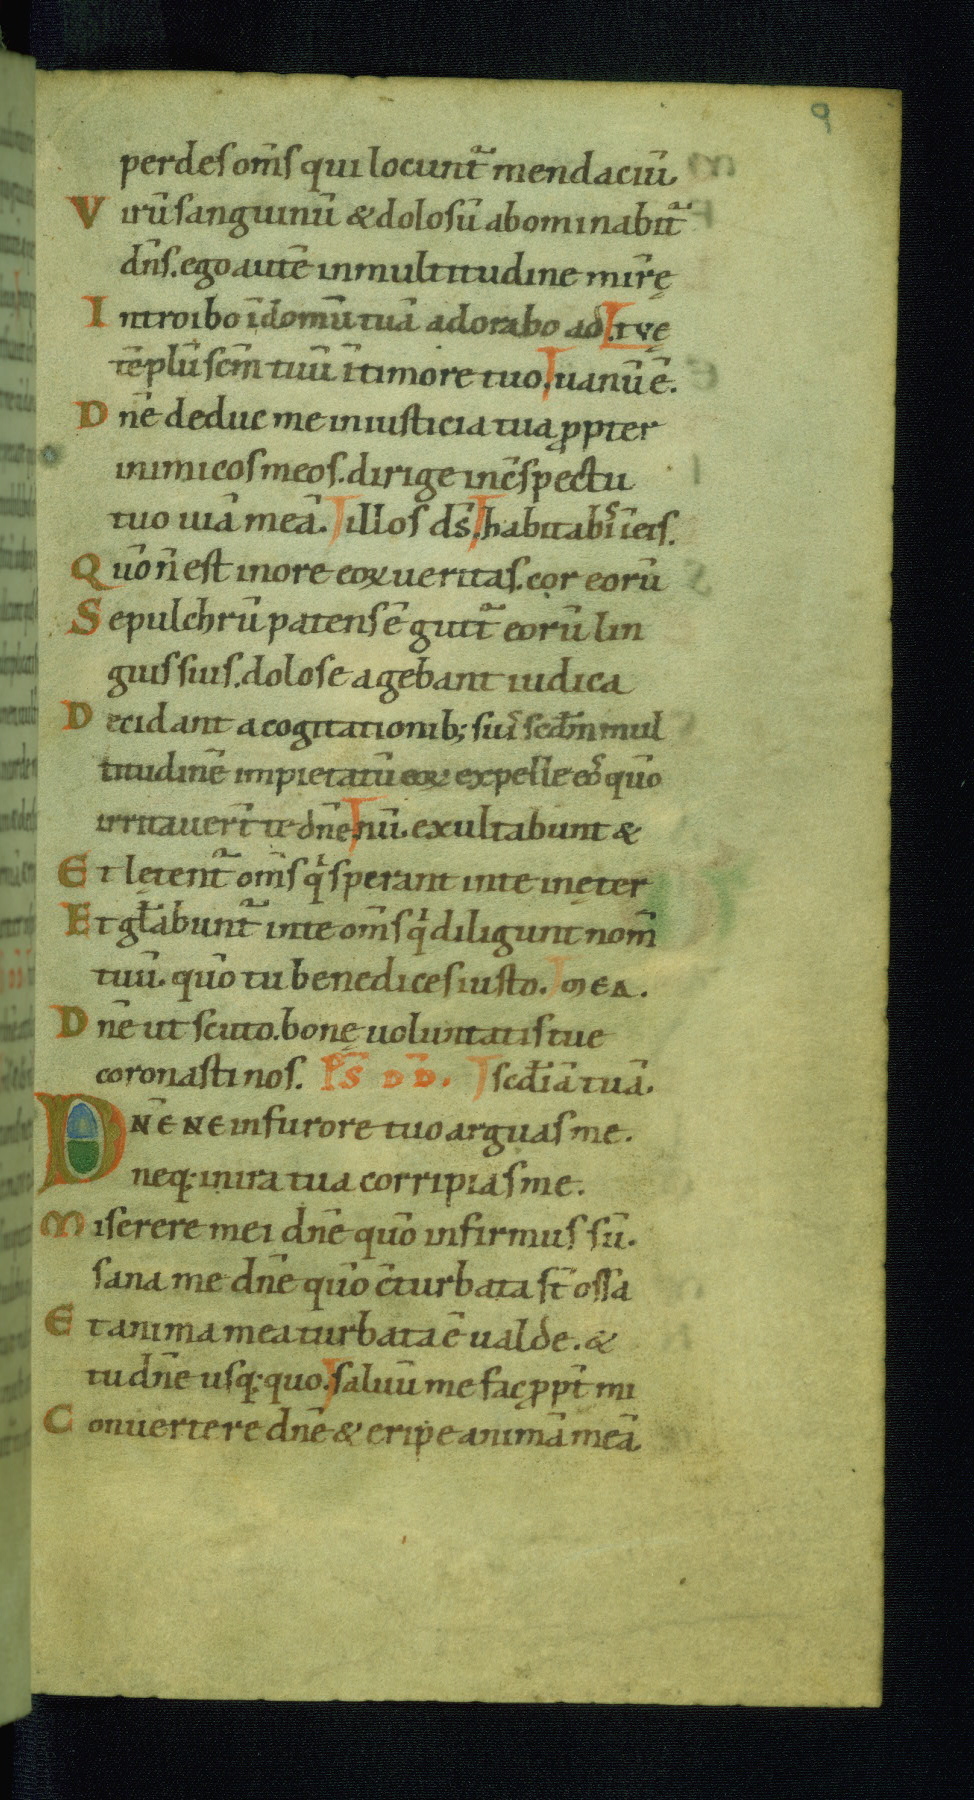 9
perdes om̄s qui locunt᷑ mendaciū
Virū sanguinū & dolosū abominabit᷑
dn̄s. ego autē in multitudine mirę
Introibo ī domū tuā adorabo ad tvę
tēplū scm̄ tuū ī timore tuo. uanū ē.
Dn̄e deduc me in iusticia tua ꝓpter
inimicos meos. dirige in c̄spectu
tuo uiā meā. illos ds̄. habitab̄ ī eis.
Quōn̄ est in ore eoꝝ ueritas. cor eorū
Sepulchrū patens ē gutt᷑ eorū lin
guis suis. dolose agebant iudica
Decidant a cogitationib; suis scdm̄ mul
titudinē impietatū eoꝝ expelle eos quō
irritauer̄t te dn̄e. nū. exultabunt &
Et lętent᷑ om̄s qi sperant in te in ęter
Et gl̄abunt᷑ in te om̄s qi diligunt nom̄
tuū. quō tu benedices iusto. mea.
Dn̄e ut scuto. bonę uoluntatis tue
coronasti nos. Ps̄ dd̄. scd̄iā tuā.
Dn̄e ne in furore tuo arguas me.
neq; in ira tua corripias me.
Miserere mei dn̄e quō infirmus sū.
sana me dn̄e quō c̄turbata st̄ ossa
Et anima mea turbata ē ualde. &
tu dn̄e usq; quo. saluū me fac ꝓpt̄ mi
Conuertere dn̄e & eripe animā meā